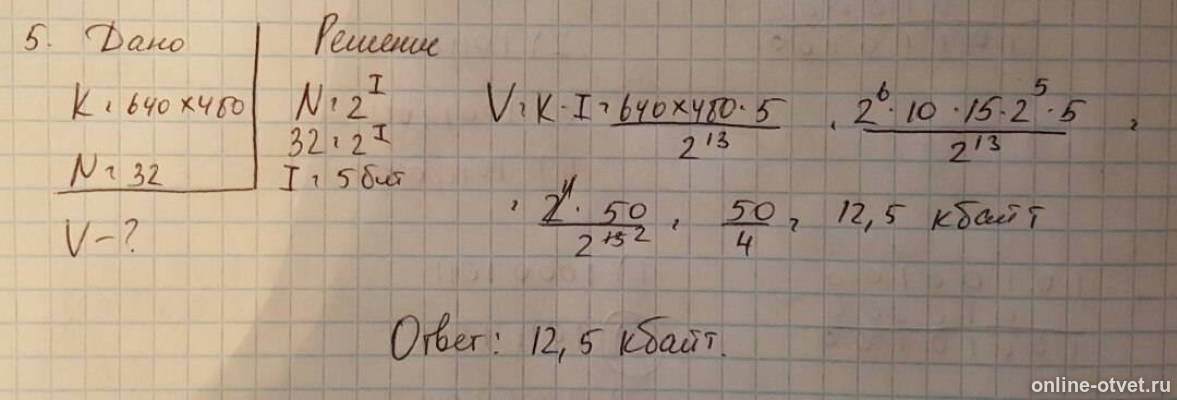 5. Дано
К = 640×480
N = 32
V - ?
Решение
N = 2^I
32 = 2^I
I = 5 бит
V = K · I = 640×480 · 5 / 2^13 = 2^6 · 10 · 15 · 2^5 · 5 / 2^13 =
= 2^11 · 50 / 2^13 2 = 50 / 4 = 12,5 кбайт
Ответ: 12,5 кбайт.
online-otvet.ru